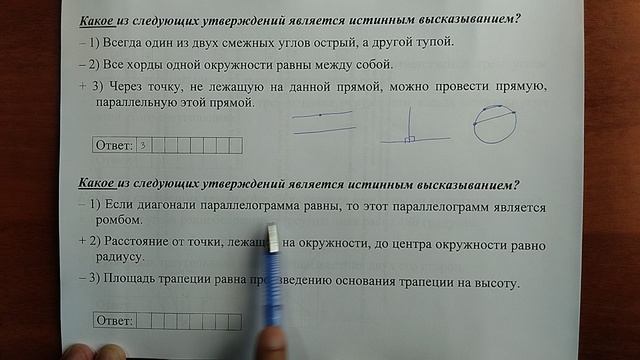 Какое из следующих утверждений является истинным высказыванием?
– 1) Всегда один из двух смежных углов острый, а другой тупой.
– 2) Все хорды одной окружности равны между собой.
+ 3) Через точку, не лежащую на данной прямой, можно провести прямую,
параллельную этой прямой.
Ответ: 3
Какое из следующих утверждений является истинным высказыванием?
– 1) Если диагонали параллелограмма равны, то этот параллелограмм является
ромбом.
+ 2) Расстояние от точки, на окружности, до центра окружности равно
радиусу.
– 3) Площадь трапеции равна основания трапеции на высоту.
Ответ: